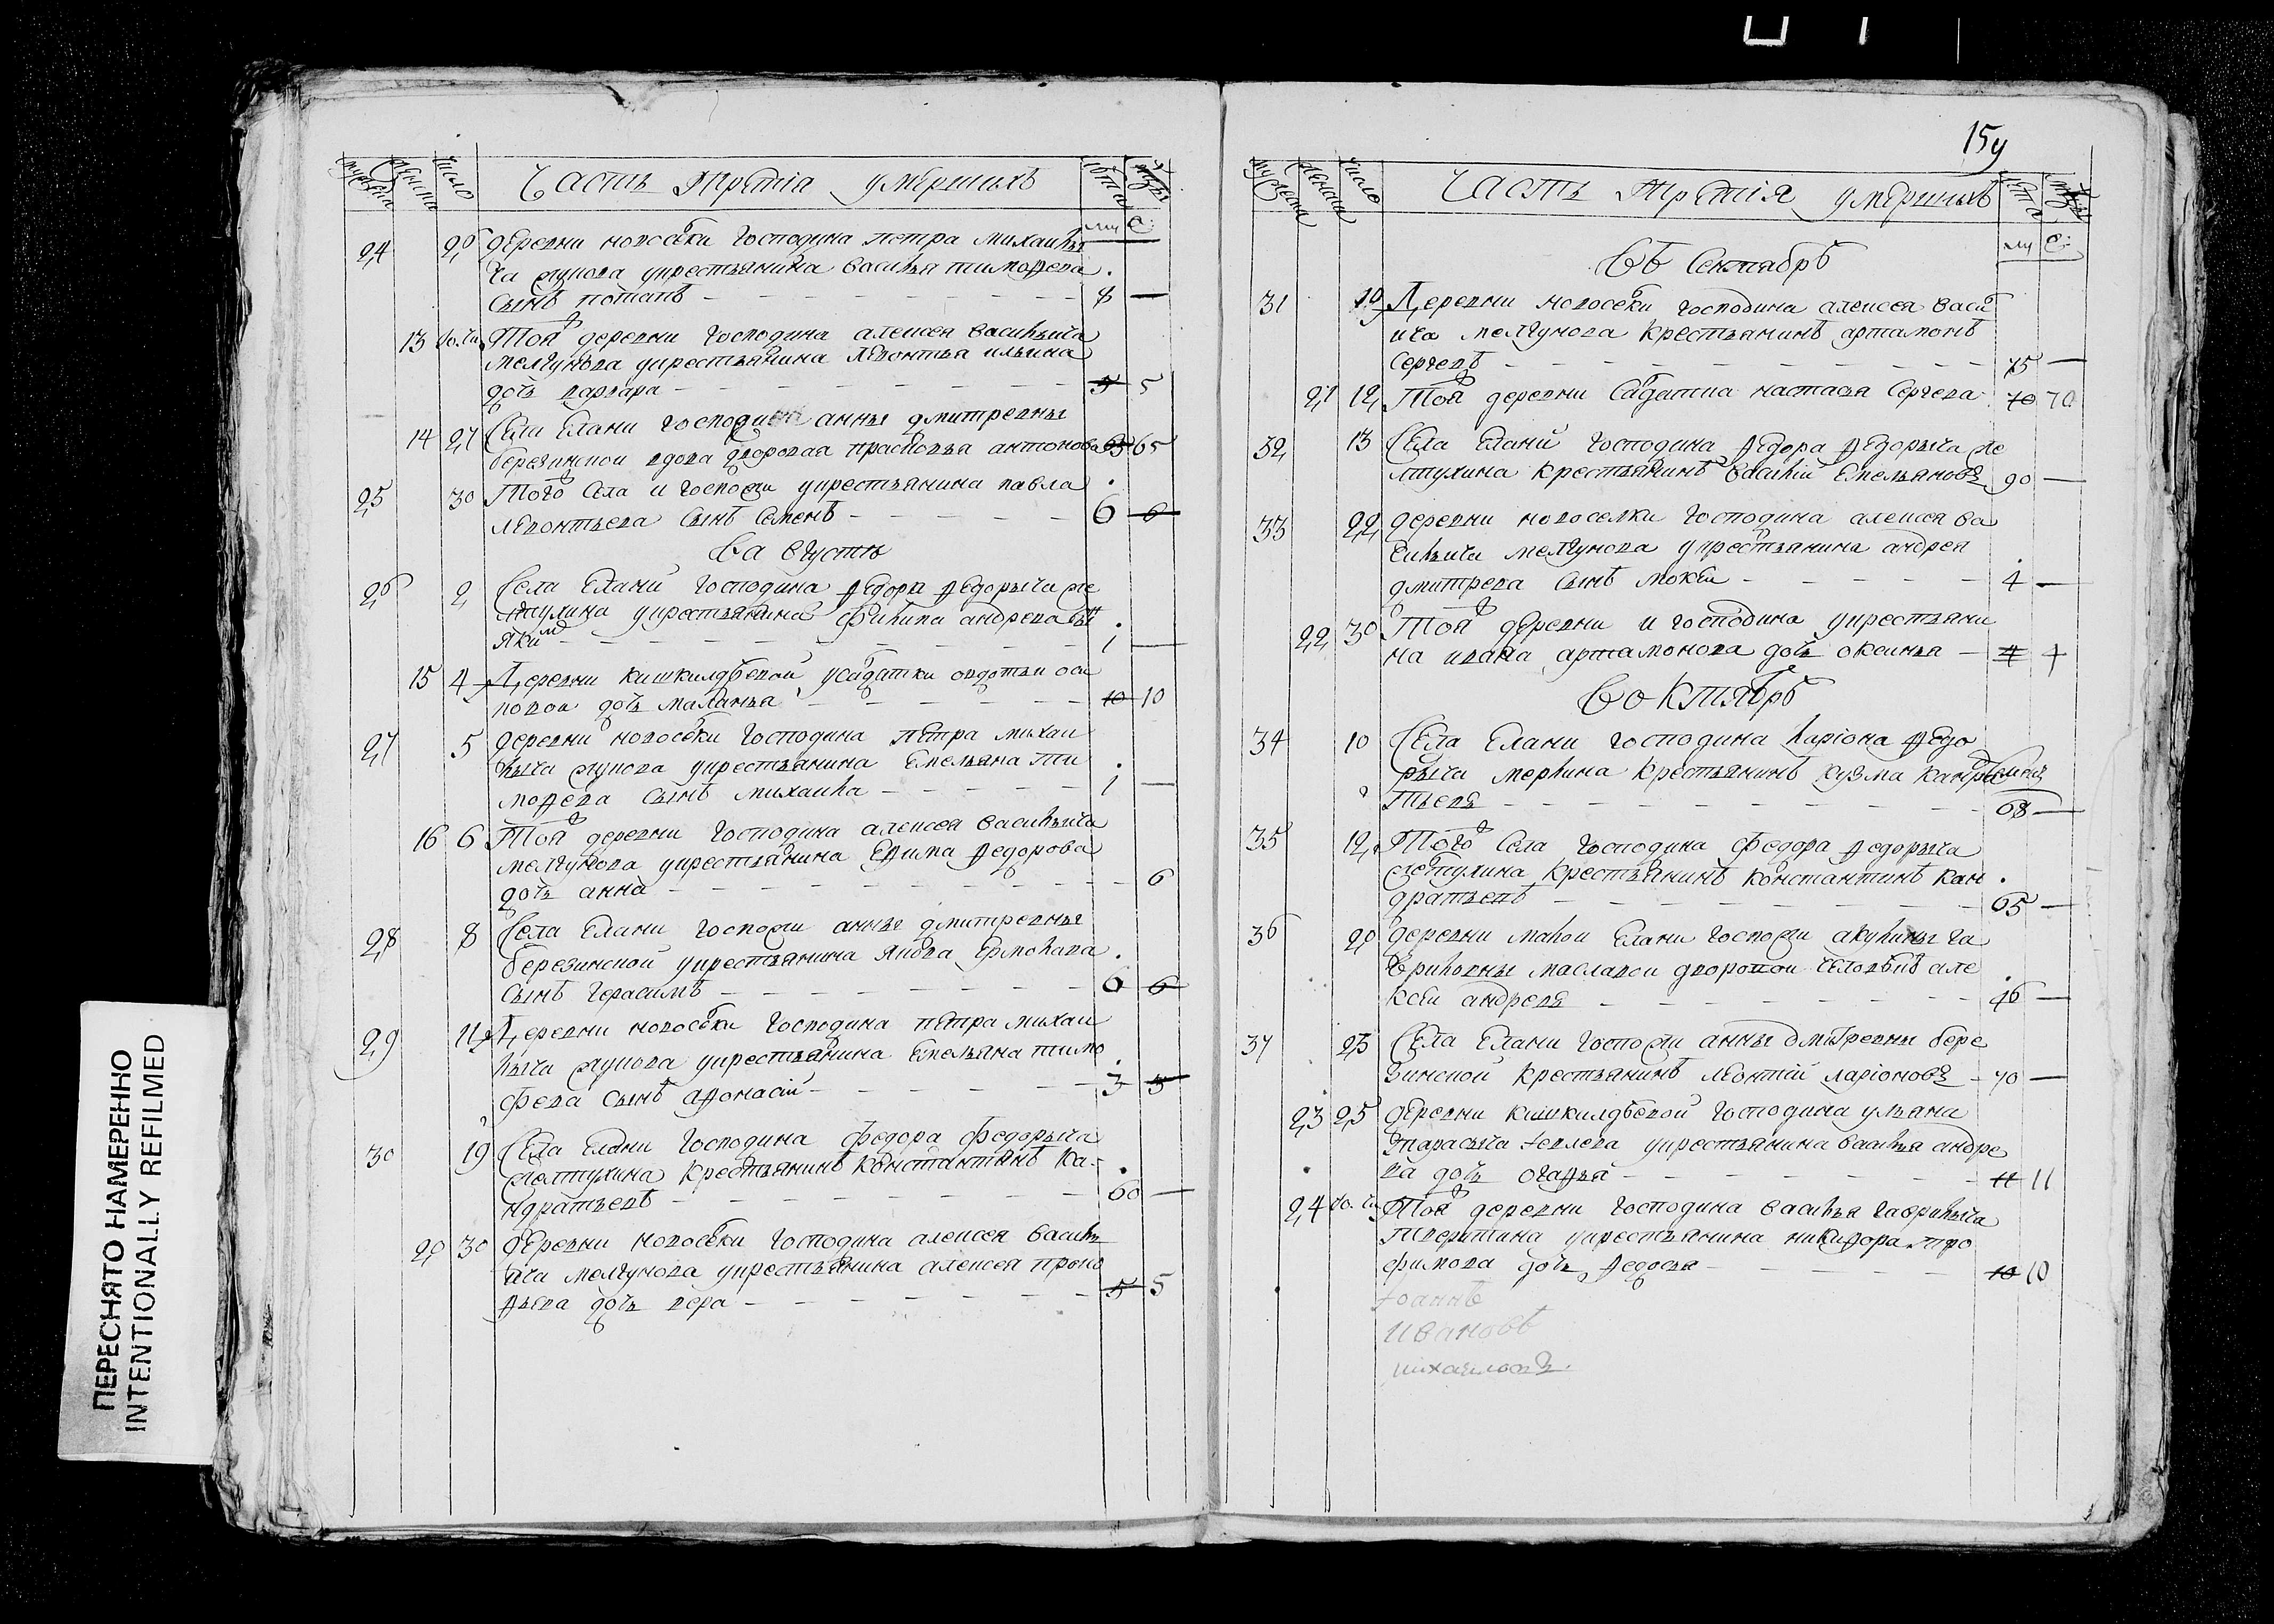 15у
Часть третіа умершихъ
лета
число
му
24 26 деревни новосѣлки господина петра михаилы
ча крестьянина василья тимофеева
сынъ потапъ 8 —
13 Того чи. Той деревни господина алексея васильича
мелгунова крестьянина леонтья ильина
дочь варвара 5 5
14 27 Села Елани анны дмитревны
березинской вдова дворовая прасковья антонова 65 65
25 30 Того села и госпожи крестьянина павла
леонтьева сынъ Семенъ 6 6
Въ августѣ
26 2 Села Елани господина федора федорыча же
лтухина крестьянина филипа андреева сы
якимъ 1 —
15 4 Деревни кишкилдѣевой усадатки овдотьи оси
повои дочь маланья 10 10
27 5 деревни новосѣлки господина петра михаи
лыча крестьянина Емельяна ти
мофеева сынъ михаила 1 —
16 6 Той деревни господина алексея васильича
мелгунова крестьянина Ефима федорова
дочь анна 6
28 8 Села Елани госпожи анны дмитревны
березинской крестьянина якова Ермолаева
сынъ герасимъ 6 6
29 11 Деревни новосѣлки господина петра михаи
лыча крестьянина Емельяна тимо
феева сынъ афонасій 3 3
30 19 Села Елани господина федора федорыча
желтухина крестьянинъ константинъ ка-
ндратьевъ 60 —
20 30 деревни новосѣлки господина алексея василь
ича мелгунова крестьянина алексея проко
фьева дочь вера 5 5
Часть третія умершихъ
лета
число
му
Въ Сентябрѣ
31 10 Деревни новосѣлки господина алексея васи
ича мелгунова крестьянинъ артамонъ
Сергеевъ 75 —
21 12 Той деревни Садатка настасья Сергеева 70 70
32 13 Села Елани господина федора федорыча же
лтухина крестьянинъ василій Емельяновъ 90 —
33 22 деревни новоселки господина алексея ва
сильича мелгунова крестьянина андрея
дмитреева сынъ мокей 4 —
22 30 Той деревни и господина крестьяни
на ивана артамонова дочь оксинья 4 4
Во Ктябрѣ
34 10 Села Елани господина ларіона федо
рыча мерлина крестьянинъ кузма кандра
тьевъ 68 —
35 12 Того села господина федора федорыча
желтухина крестьянинъ константинъ кан
дратьевъ 65 —
36 20 деревни малои Елани госпожи акулины га
вриловны масловои дворовои человѣкъ але
ксеи андреевъ 46 —
37 23 Села Елани госпожи анны дмитревны бере
зинской крестьянинъ леонтій ларіоновъ 70 —
23 25 деревни кишкилдѣевой господина ульяна
крестьянина василья андре
ва дочь огафья 11 11
24 Того чи. Той деревни господина василья гаврилыча
тверитина крестьянина никифора тро
фимова дочь федосья 10 10
Іоаннъ
Ивановъ
михаиловъ
ПЕРЕСНЯТО НАМЕРЕННО
INTENTIONALLY REFILMED